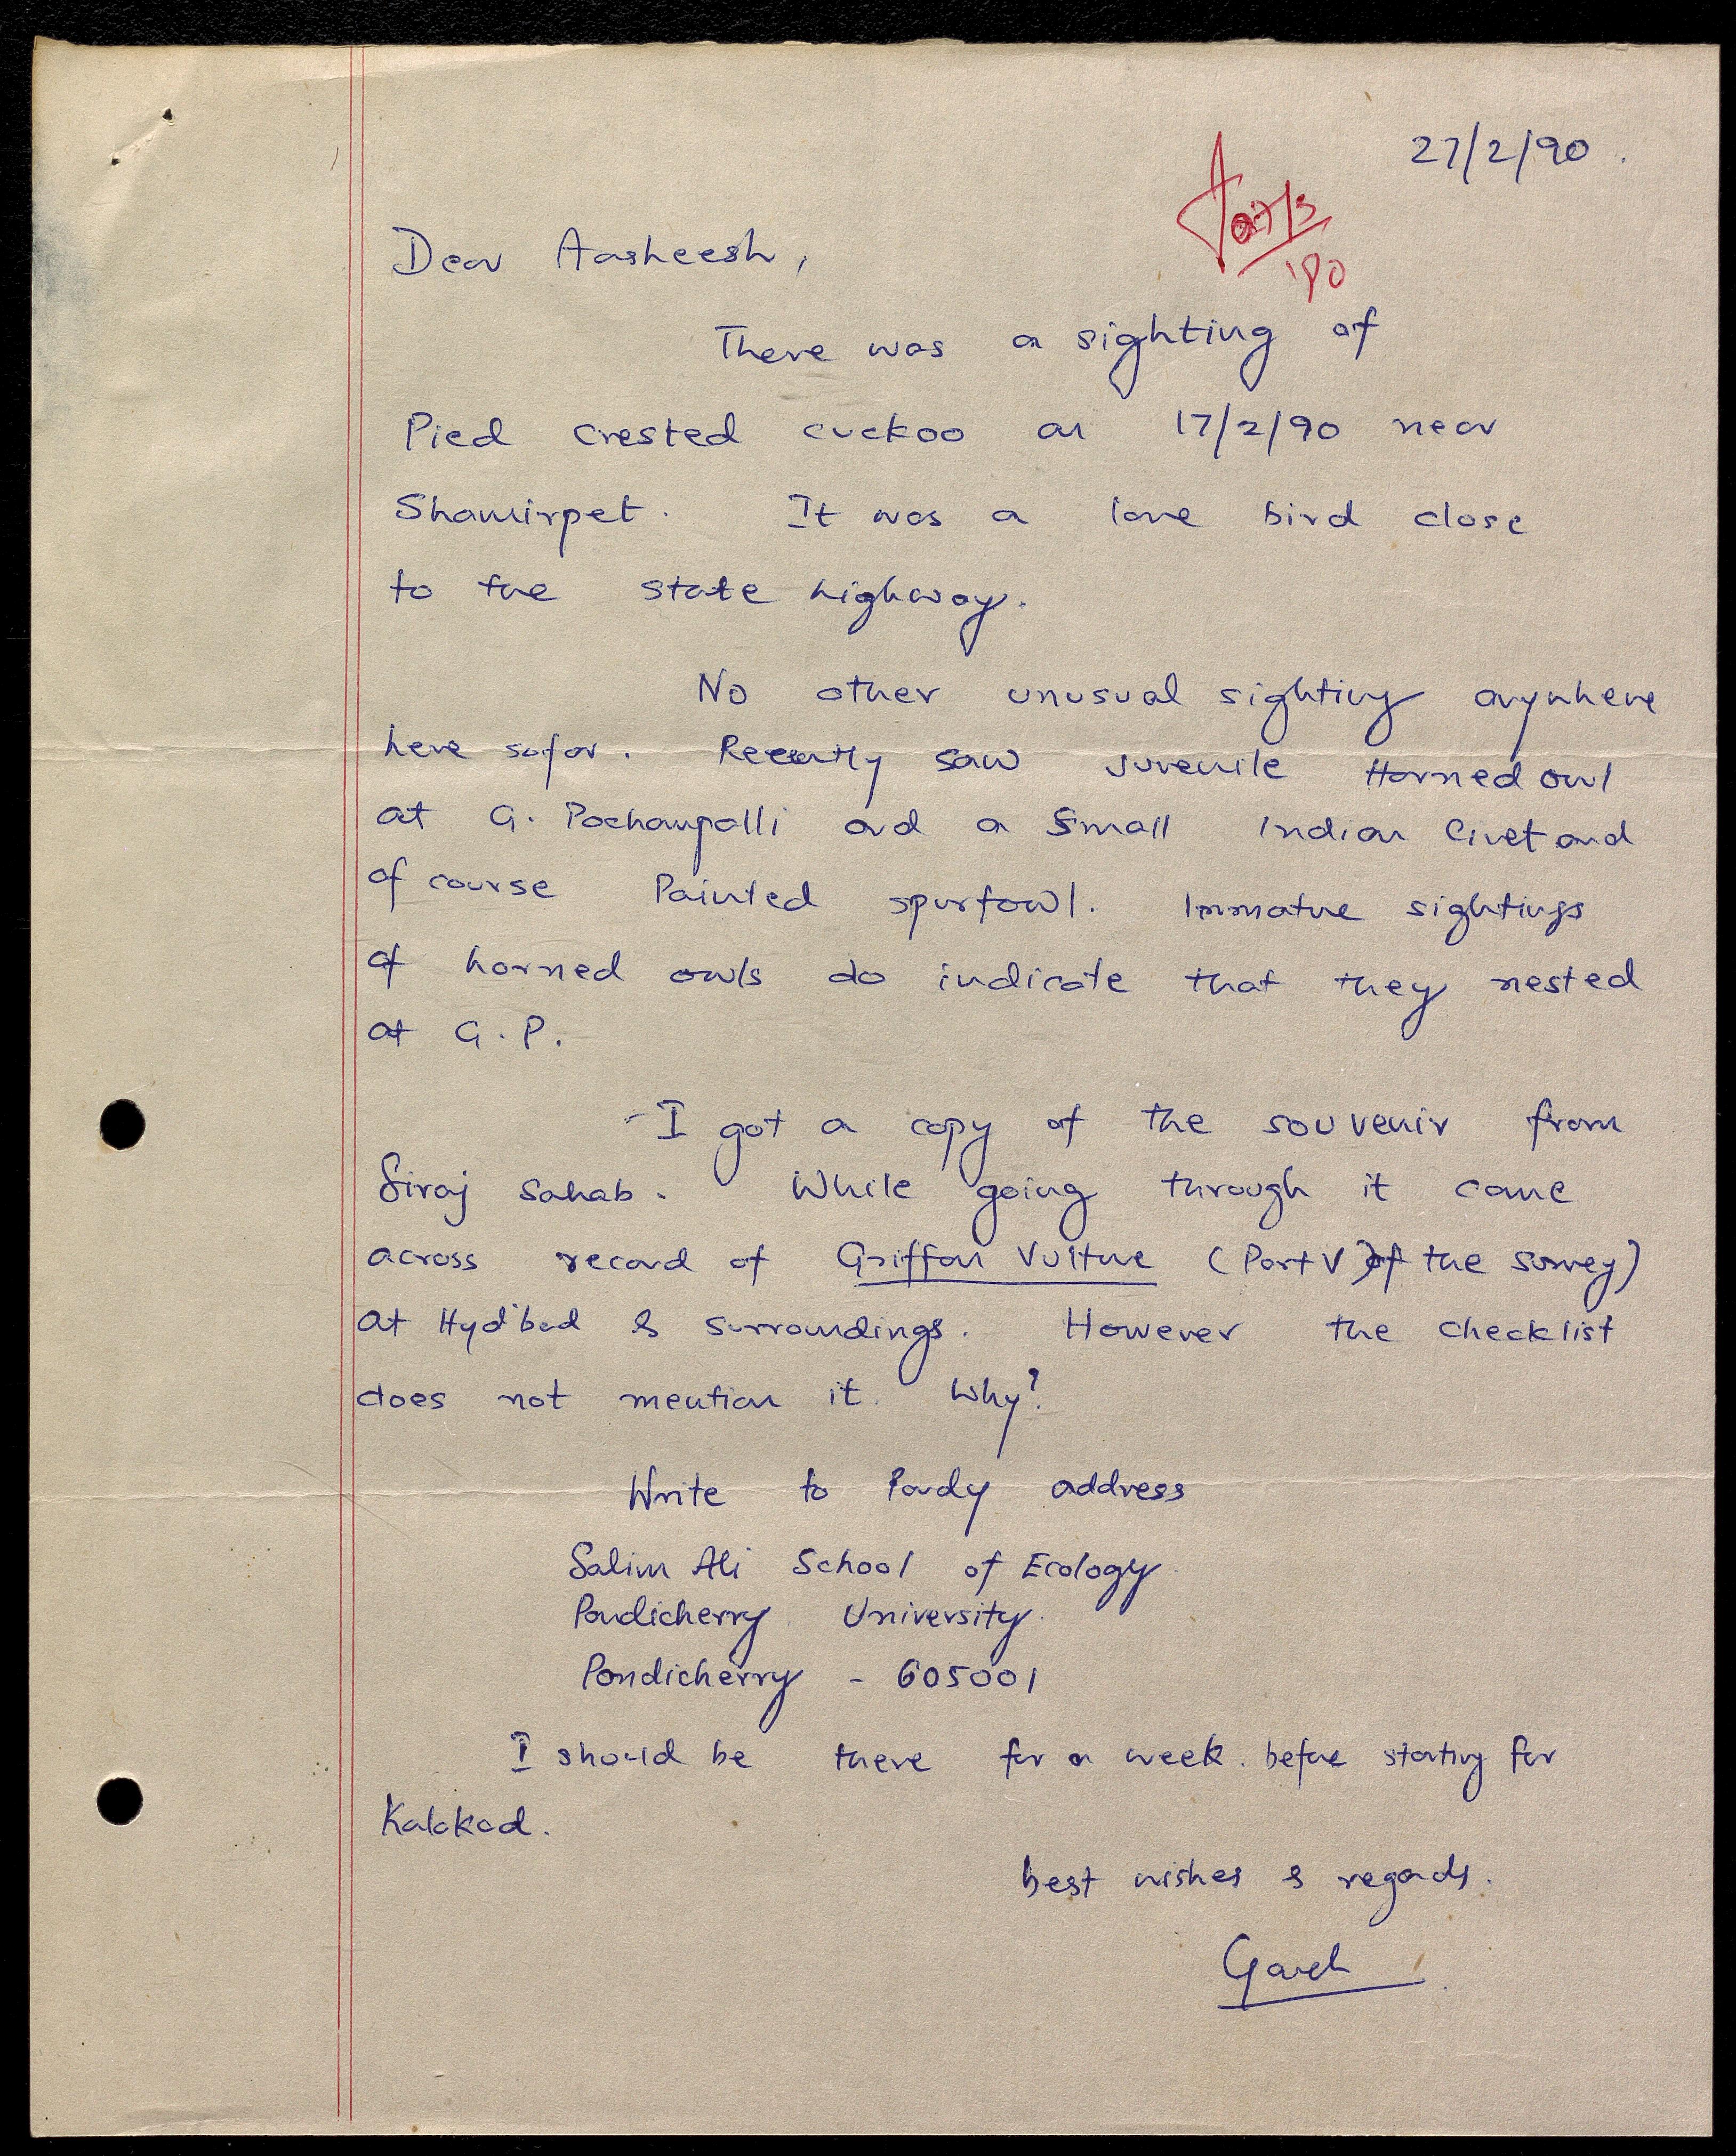 27/2/90.
Dear Aasheesh,
There was a sighting of
Pied crested cuckoo on 17/2/90 near
Shamirpet. It was a lone bird close
to the state highway.
No other unusual sighting anywhere
here sofar. Recently saw juvenile Horned owl
at G. Pochampalli and a Small Indian Civet and
of course Painted spurfowl. Immature sightings
of horned owls do indicate that they nested
at G.P.
I got a copy of the souvenir from
Siraj Sahab. While going through it came
across record of Griffon Vulture (Part V of the survey)
at Hyd'bad & surroundings. However the checklist
does not mention it. Why?
Write to Pondy address
Salim Ali School of Ecology
Pondicherry University.
Pondicherry - 605001
I should be there for a week. before starting for
Kalakad.
best wishes & regards.